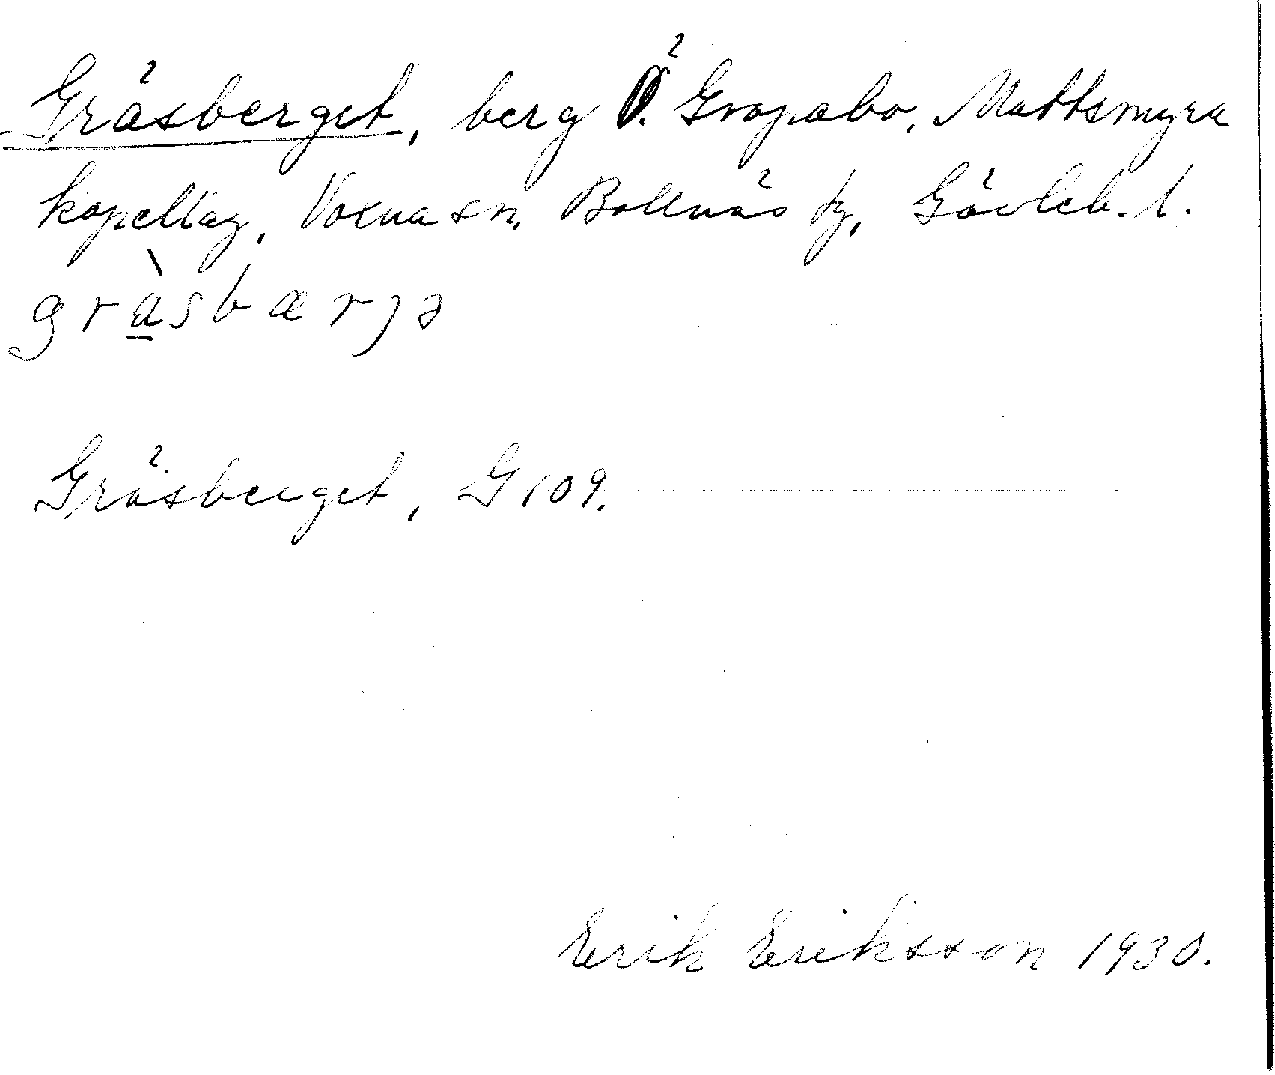 Gräsberget, berg Ö. Gropabo, Mattsmyra
kapellag, Voxna sn, Bollnäs fg, Gävleb. l.
gràsbærjə
Gräsberget, G 109.
Erik Eriksson 1930.